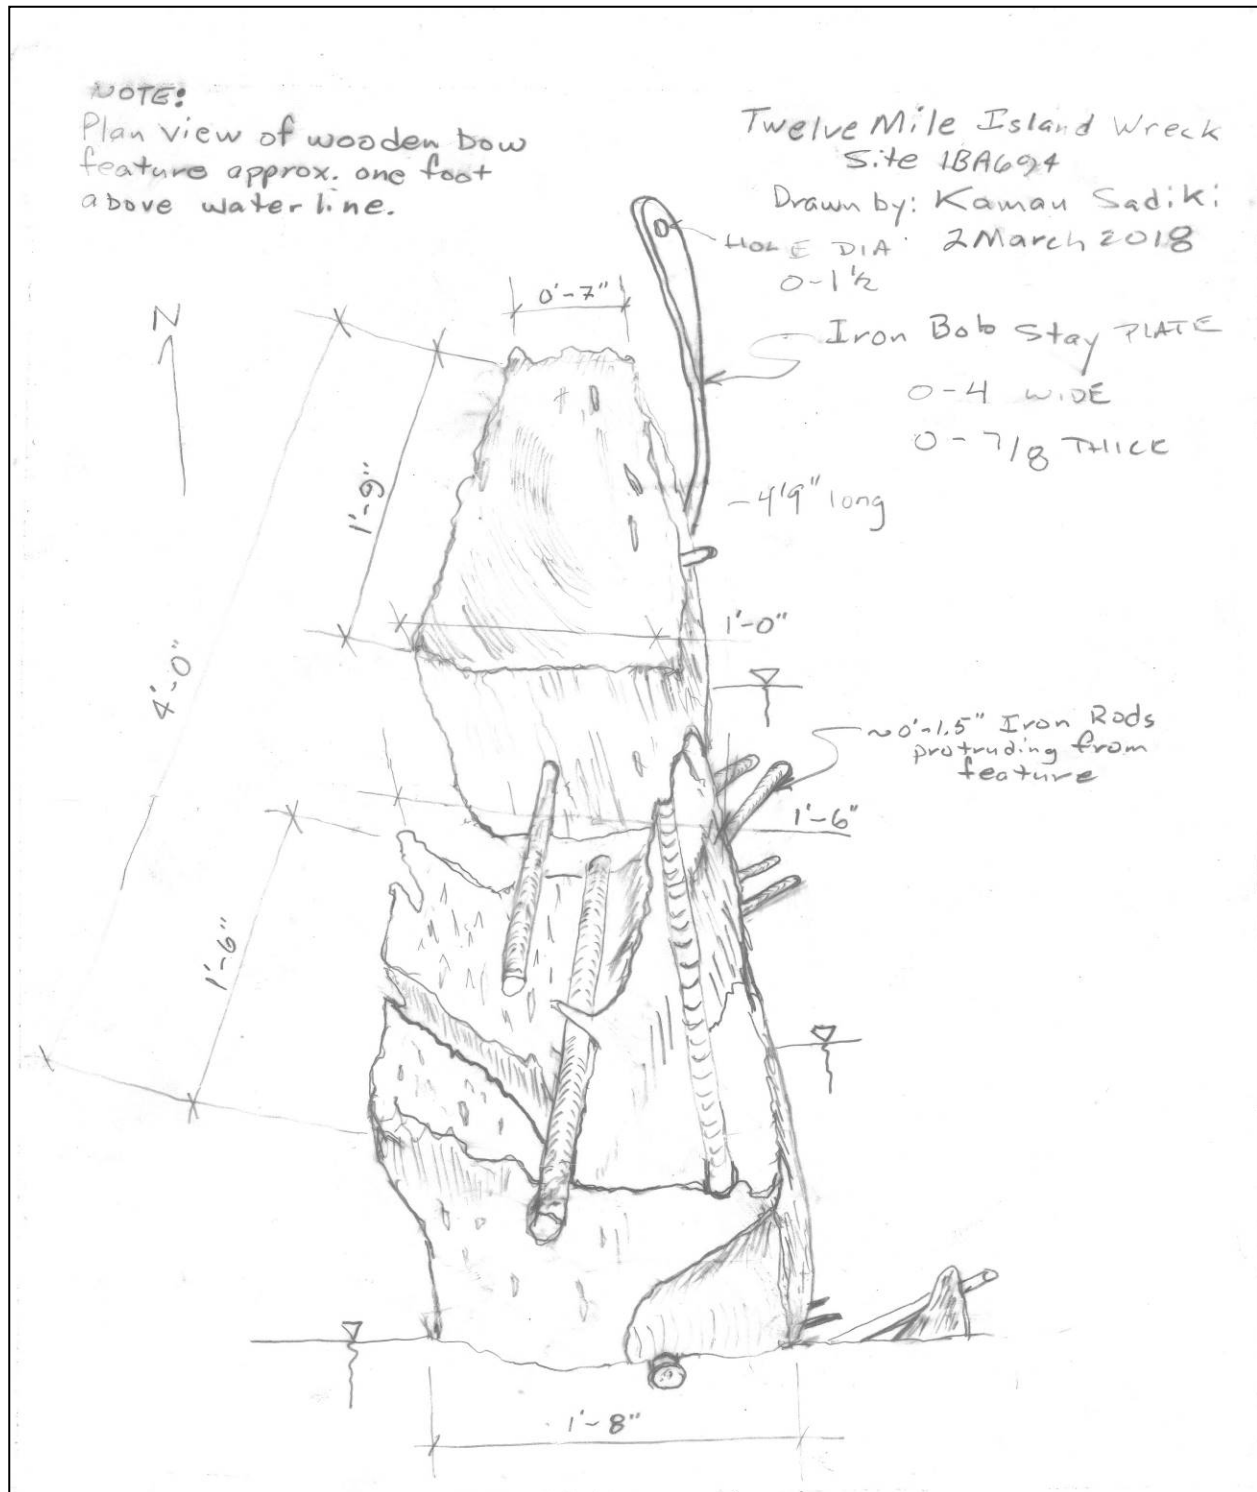 NOTE:
Plan view of wooden bow
feature approx. one foot
above water line.
Twelve Mile Island Wreck
Site 1BA694
Drawn by: Kamau Sadiki
2 March 2018
HOLE DIA
0-1½
0'-7"
N
Iron Bob Stay PLATE
0-4 WIDE
0-7/8 THICK
1'-9"
~4'9" long
1'-0"
4'-0"
~0'-1.5" Iron Rods
protruding from
feature
1'-6"
1'-6"
1'-8"